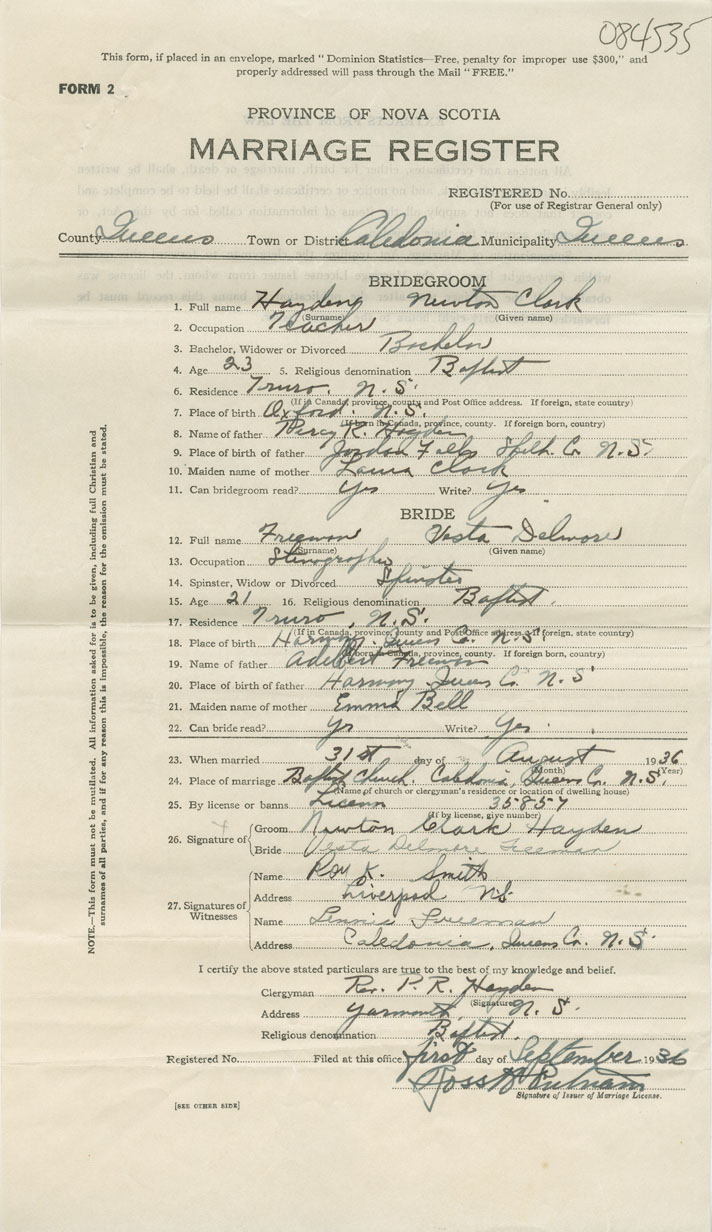 084535
This form, if placed in an envelope, marked " Dominion Statistics—Free, penalty for improper use $300," and
properly addressed will pass through the Mail " FREE."
FORM 2
PROVINCE OF NOVA SCOTIA
MARRIAGE REGISTER
REGISTERED No.
(For use of Registrar General only)
County Queens Town or District Caledonia Municipality Queens
BRIDEGROOM
1. Full name Hayden Newton Clark
(Surname) (Given name)
2. Occupation Teacher
3. Bachelor, Widower or Divorced Bachelor
4. Age 23 5. Religious denomination Baptist
6. Residence Truro, N.S.
(If in Canada, province, county and Post Office address. If foreign, state country)
7. Place of birth Oxford. N.S.
(If born in Canada, province, county. If foreign born, country)
8. Name of father Percy R. Hayden
9. Place of birth of father Jordan Falls Shelb. Co. N.S.
10. Maiden name of mother Laura Clark
11. Can bridegroom read? Yes Write? Yes
BRIDE
12. Full name Freeman Vesta Delmore
(Surname) (Given name)
13. Occupation Stenographer
14. Spinster, Widow or Divorced Spinster
15. Age 21 16. Religious denomination Baptist.
17. Residence Truro, N.S.
(If in Canada, province, county and Post Office address. If foreign, state country)
18. Place of birth Harmony. Queens Co. N.S.
(If born in Canada, province, county. If foreign born, country)
19. Name of father Adelbert Freeman
20. Place of birth of father Harmony Queens Co. N.S.
21. Maiden name of mother Emma Bell
22. Can bride read? Yes Write? Yes.
23. When married 31st day of August 1936
(Month) (Year)
24. Place of marriage Baptist Church, Caledonia, Queens Co. N.S.
(Name of church or clergyman's residence or location of dwelling house)
25. By license or banns License 35857
(If by license, give number)
26. Signature of
Groom Newton Clark Hayden
Bride Vesta Delmore Freeman
27. Signatures of Witnesses
Name Roy K. Smith
Address Liverpool N.S.
Name Lennie Freeman
Address Caledonia, Queens Co. N.S.
I certify the above stated particulars are true to the best of my knowledge and belief.
Clergyman Rev. P. R. Hayden
(Signature)
Address Yarmouth N.S.
Religious denomination Baptist.
Registered No. Filed at this office first day of September 1936
Ross H Putnam
Signature of Issuer of Marriage License.
[SEE OTHER SIDE]
NOTE.—This form must not be mutilated. All information asked for is to be given, including full Christian and
surnames of all parties, and if for any reason this is impossible, the reason for the omission must be stated.